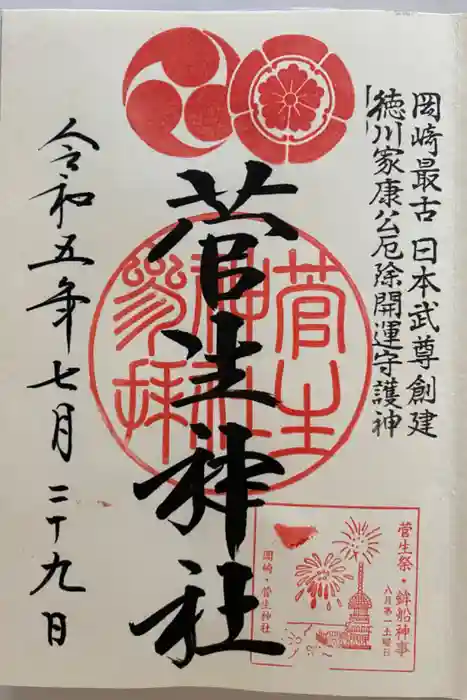 岡崎最古 日本武尊創建
徳川家康公厄除開運守護神
菅生神社
菅生神社参拝
令和五年七月二十九日
菅生祭・鉾船神事
八月第一土曜日
岡崎・菅生神社